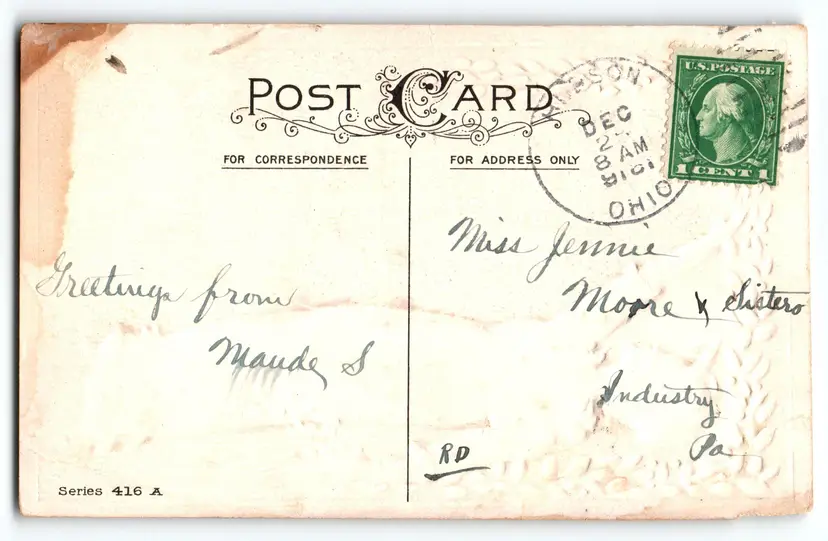 POST CARD
FOR CORRESPONDENCE
FOR ADDRESS ONLY
HUDSON
DEC
8 AM
OHIO
U.S. POSTAGE
1 CENT 1
Greetings from
Maude S
Miss Jennie
Moore & Sisters
Industry
Pa
RD
Series 416 A